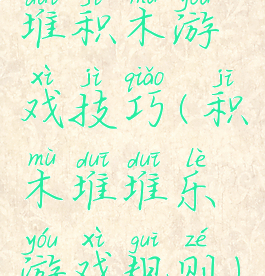 duī jī mù yóu
堆积木游
xì jì qiǎo jī
戏技巧(积
mù duī duī lè
木堆堆乐
yóu xì guī zé
游戏规则)